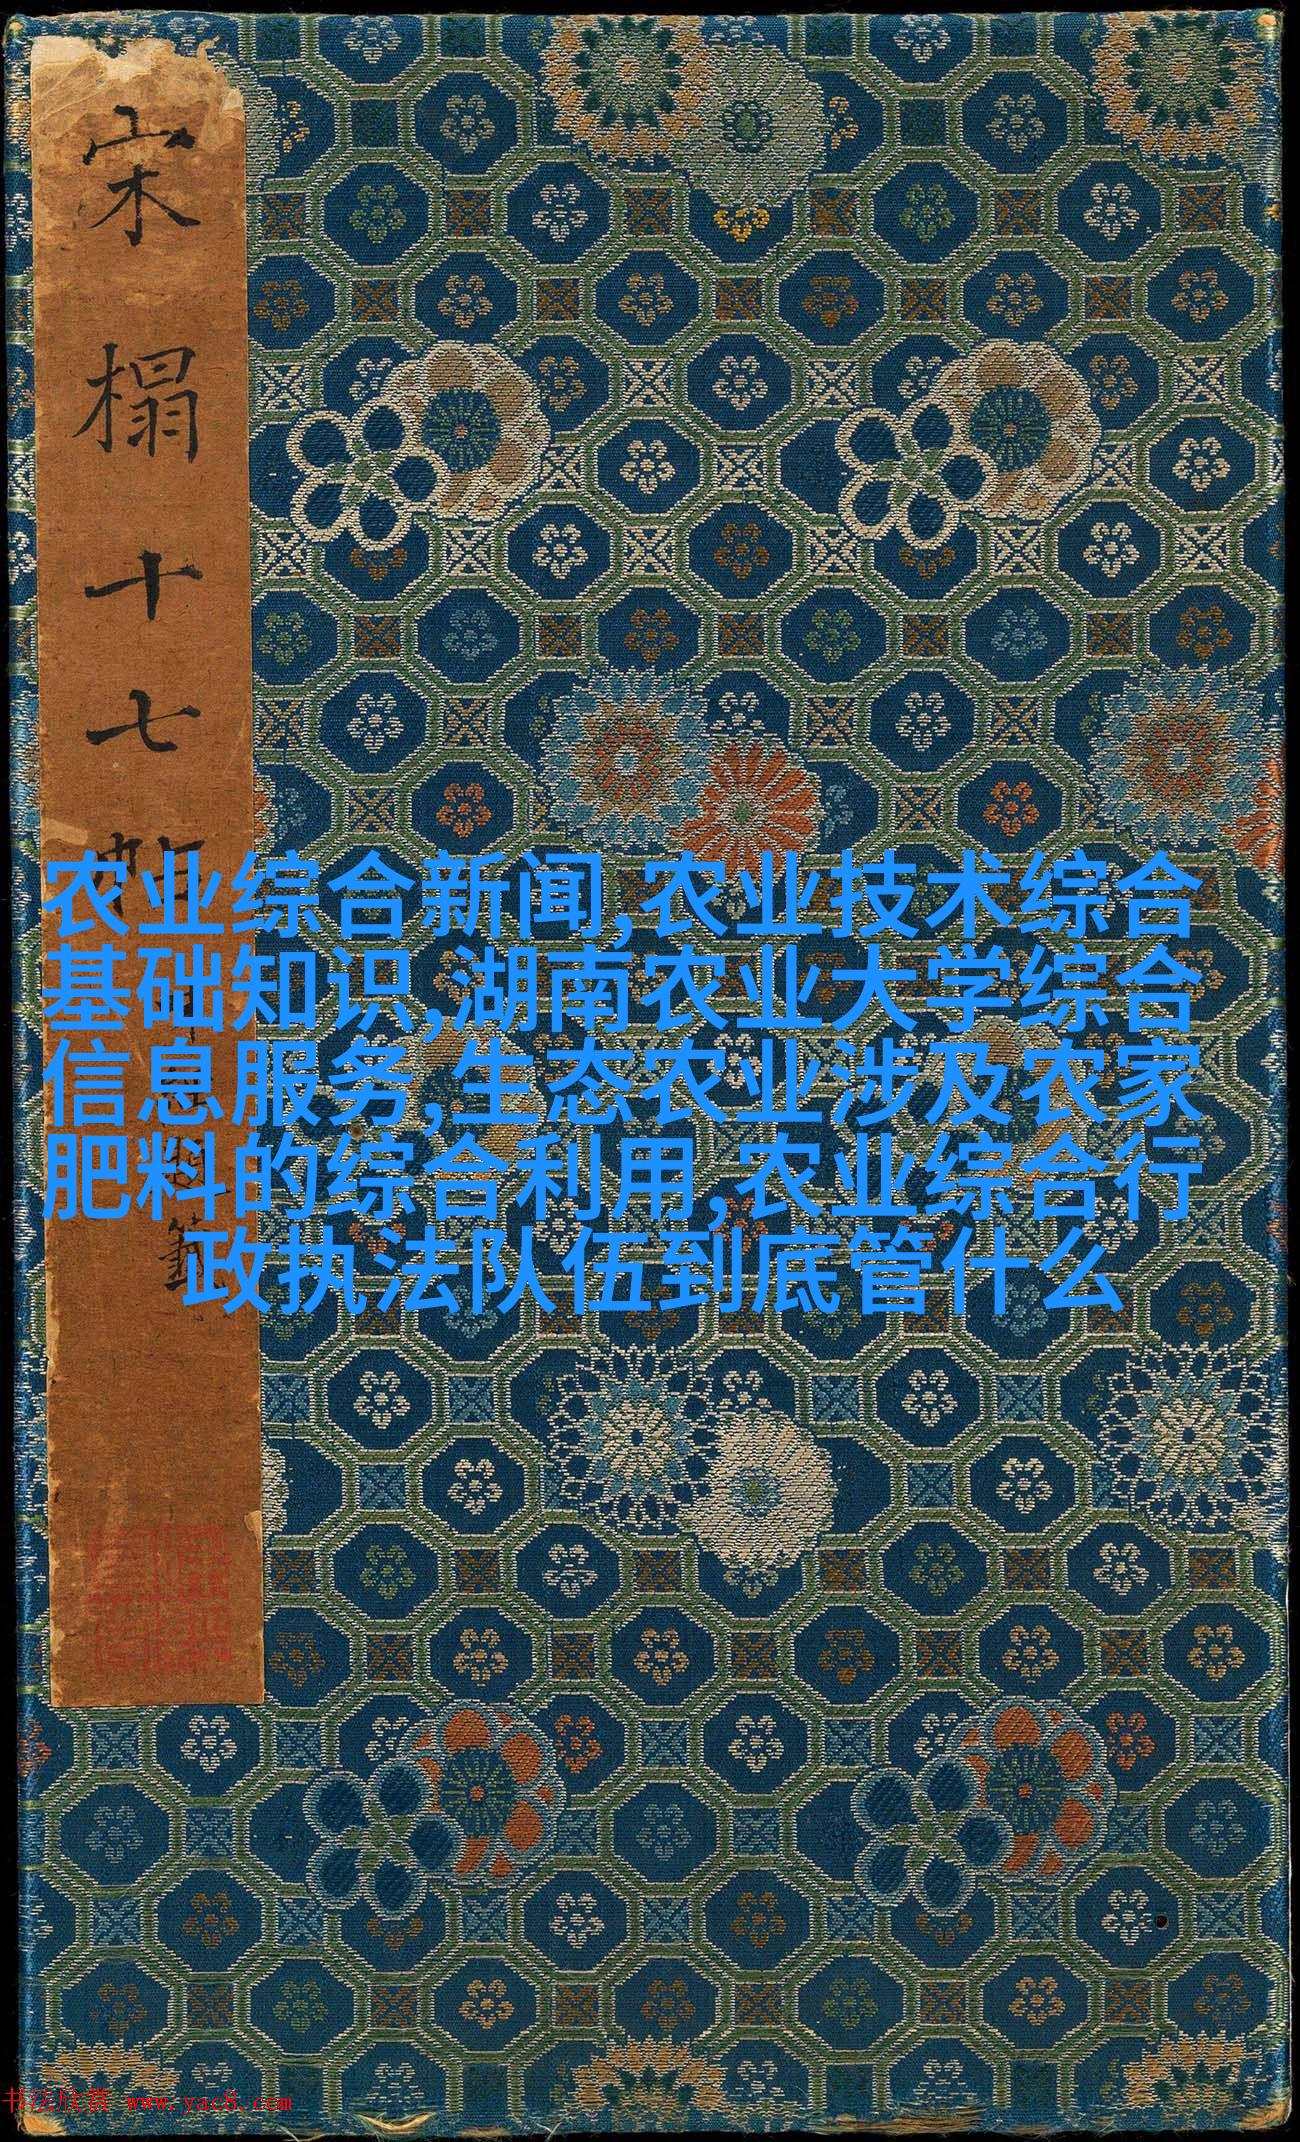 宋榻十七帖
农业综合新闻,农业技术综合
基础知识,湖南农业大学综合
信息服务,生态农业涉及农家
肥料的综合利用,农业综合行
政执法队伍到底管什么
书法欣赏 www.yac8.com